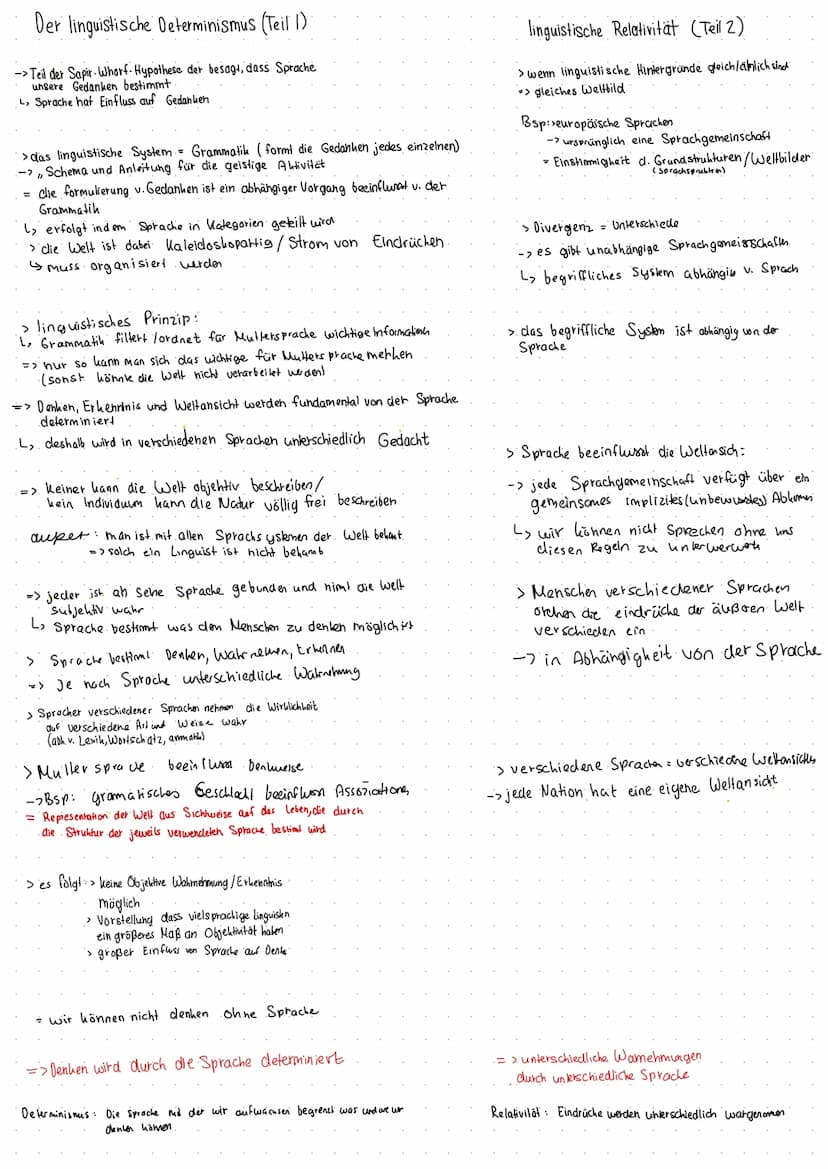 Der linguistische Determinismus (Teil 1)
-> Teil der Sapir-Whorf-Hypothese der besagt, dass Sprache
unsere Gedanken bestimmt
↳ Sprache hat Einfluss auf Gedanken
> das linguistische System = Grammatik (formt die Gedanken jedes einzelnen)
-> „Schema und Anleitung für die geistige Aktivität
= die formulierung v. Gedanken ist ein abhängiger Vorgang beeinflusst v. der
Grammatik
↳ erfolgt indem Sprache in Kategorien geteilt wird
> die Welt ist dabei Kaleidoskopartig / Strom von Eindrücken
↳ muss organisiert werden
> linguistisches Prinzip:
↳ Grammatik filtert /ordnet für Muttersprache wichtige Information
=> nur so kann man sich das wichtige für Muttersprache merken
(sonst könnte die Welt nicht verarbeitet werden)
=> Denken, Erkenntnis und Weltansicht werden fundamental von der Sprache
determiniert
↳ deshalb wird in verschiedenen Sprachen unterschiedlich Gedacht
=> Keiner kann die Welt objektiv beschreiben/
kein Individuum kann die Natur völlig frei beschreiben
außer: man ist mit allen Sprachsystemen der Welt bekannt
=> solch ein Linguist ist nicht bekannt
=> jeder ist an seine Sprache gebunden und nimt die Welt
subjektiv wahr
↳ Sprache bestimt was den Menschen zu denken möglich ist
> Sprache bestimt Denken, Wahrnehmen, Erkennen
=> Je nach Sprache unterschiedliche Wahrnehmung
> Sprecher verschiedener Sprachen nehmen die Wirklichkeit
auf verschiedene Art und Weise wahr
(abh. v. Lexik, Wortschatz,
> Muttersprache beeinflusst Denkweise
-> Bsp: gramatisches Geschlecht beeinflussen Assoziationen
= Representation der Welt aus Sichtweise auf das Leben, die durch
die Struktur der jeweils verwendeten Sprache bestimt wird
> es folgt => keine Objektive Wahrnehmung/Erkenntnis
möglich
> Vorstellung dass vielsprachige linguisten
ein größeres Maß an Objektivität haben
> großer Einfluss von Sprache auf Denken
= wir können nicht denken ohne Sprache
=> Denken wird durch die Sprache determiniert
Determinismus: Die Sprache mit der wir aufwachsen begrenzt was und wie wir
denken können
linguistische Relativität (Teil 2)
> wenn linguistische Hintergründe gleich/ähnlich sind
=> gleiches Weltbild
Bsp: > europäische Sprachen
-> ursprünglich eine Sprachgemeinschaft
= Einstimmigkeit d. Grundstrukturen/Weltbilder
(Sprachstrukturen)
> Divergenz = Unterschiede
-> es gibt unabhängige Sprachgemeinschaften
↳ begriffliches System abhängig v. Sprach
> das begriffliche System ist abhängig von der
Sprache
> Sprache beeinflusst die Weltansich:
-> jede Sprachgemeinschaft verfügt über ein
gemeinsames implizites (unbewusstes) Abkommen
↳ wir können nicht sprechen ohne uns
diesen Regeln zu unterwerfen
> Menschen verschiedener Sprachen
ordnen die eindrücke der äußeren Welt
verschieden ein
-> in Abhängigkeit von der Sprache
> verschiedene Sprachen = verschiedene Weltansichten
-> jede Nation hat eine eigene Weltansicht
=> unterschiedliche Warnehmungen
durch unterschiedliche Sprache
Relativität: Eindrücke werden unterschiedlich wargenomen